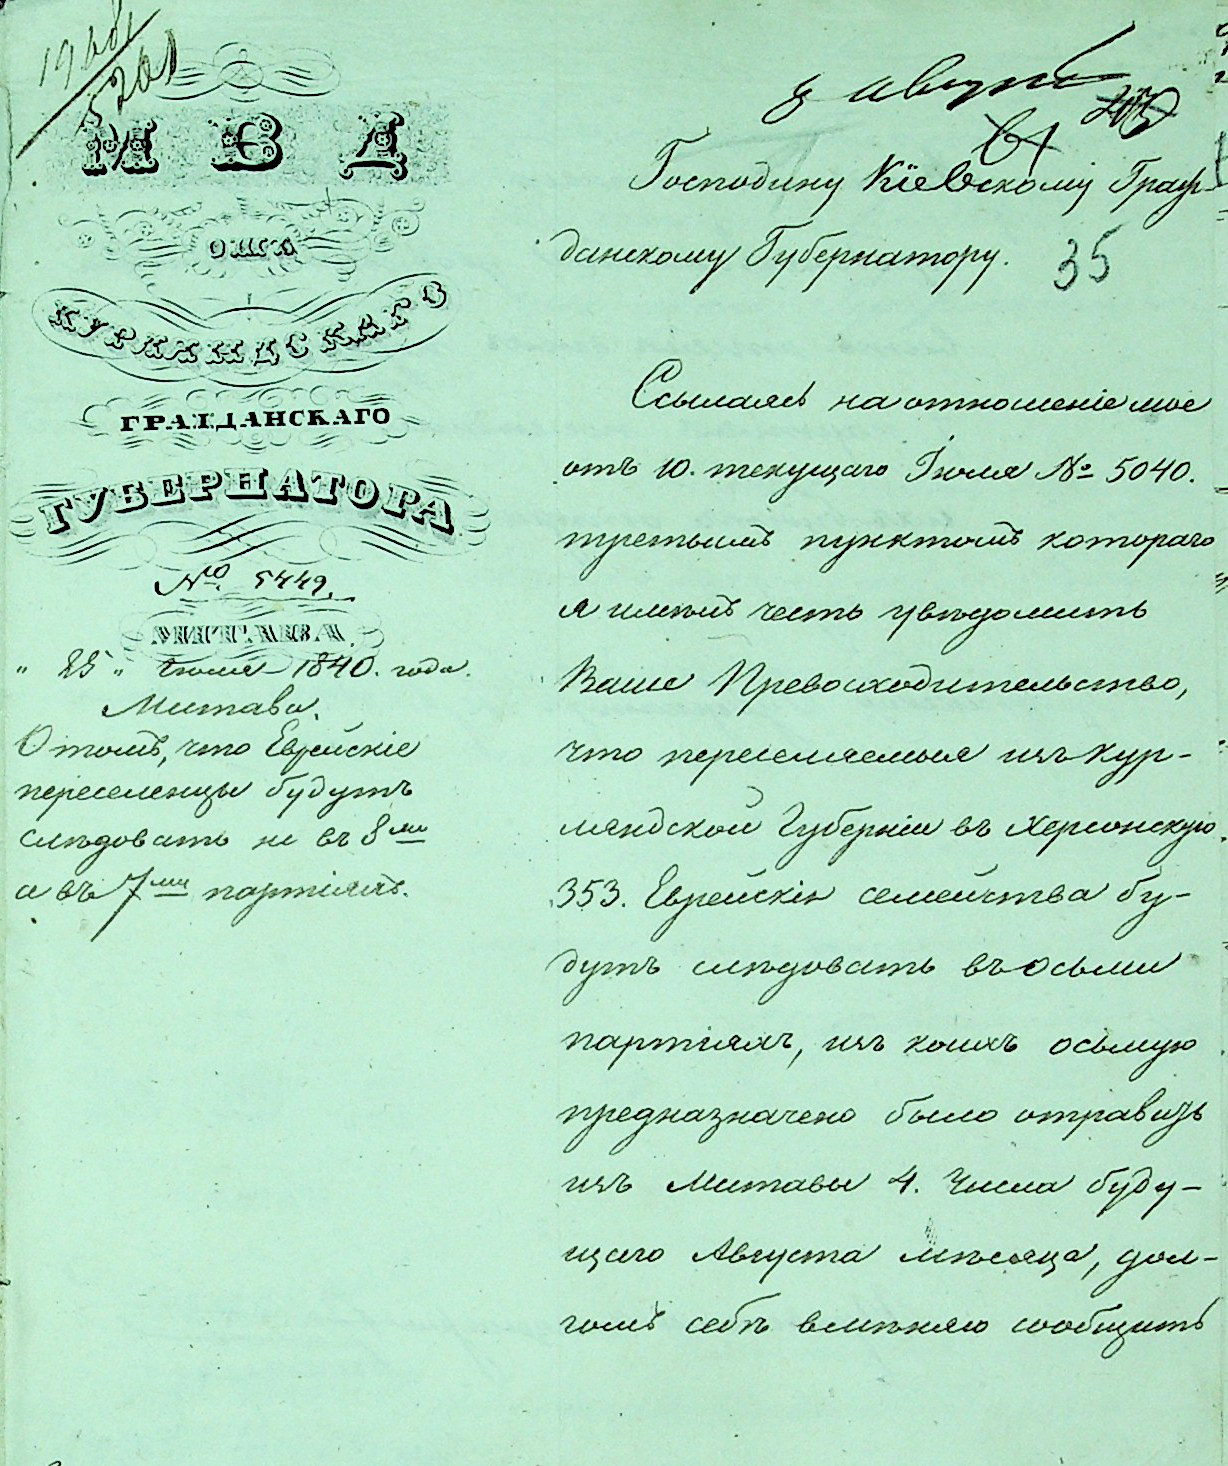 5201
М В Д
ОТЪ
КУРЛЯНДСКАГО
ГРАЖДАНСКАГО
ГУБЕРНАТОРА
№ 5449.
МИТАВА.
" 25 " Іюля 1840. года.
Митава.
О томъ, что Еврейскіе
переселенцы будутъ
слѣдовать не въ 8ми
а въ 7ми партіяхъ.
8 августа
Господину Кіевскому Граж-
данскому Губернатору.
35
Ссылаясь на отношеніе мое
отъ 10. текущаго Іюля № 5040.
третьимъ пунктомъ котораго
я имѣлъ честь увѣдомить
Ваше Превосходительство,
что переселяемыя изъ Кур-
ляндской Губерніи въ Херсонскую
353. Еврейскія семейства бу-
дутъ слѣдовать въ осьми
партіяхъ, изъ коихъ осьмую
предназначено было отправить
изъ Митавы 4. числа буду-
щаго Августа мѣсяца, дол-
гомъ себѣ вмѣняю сообщить